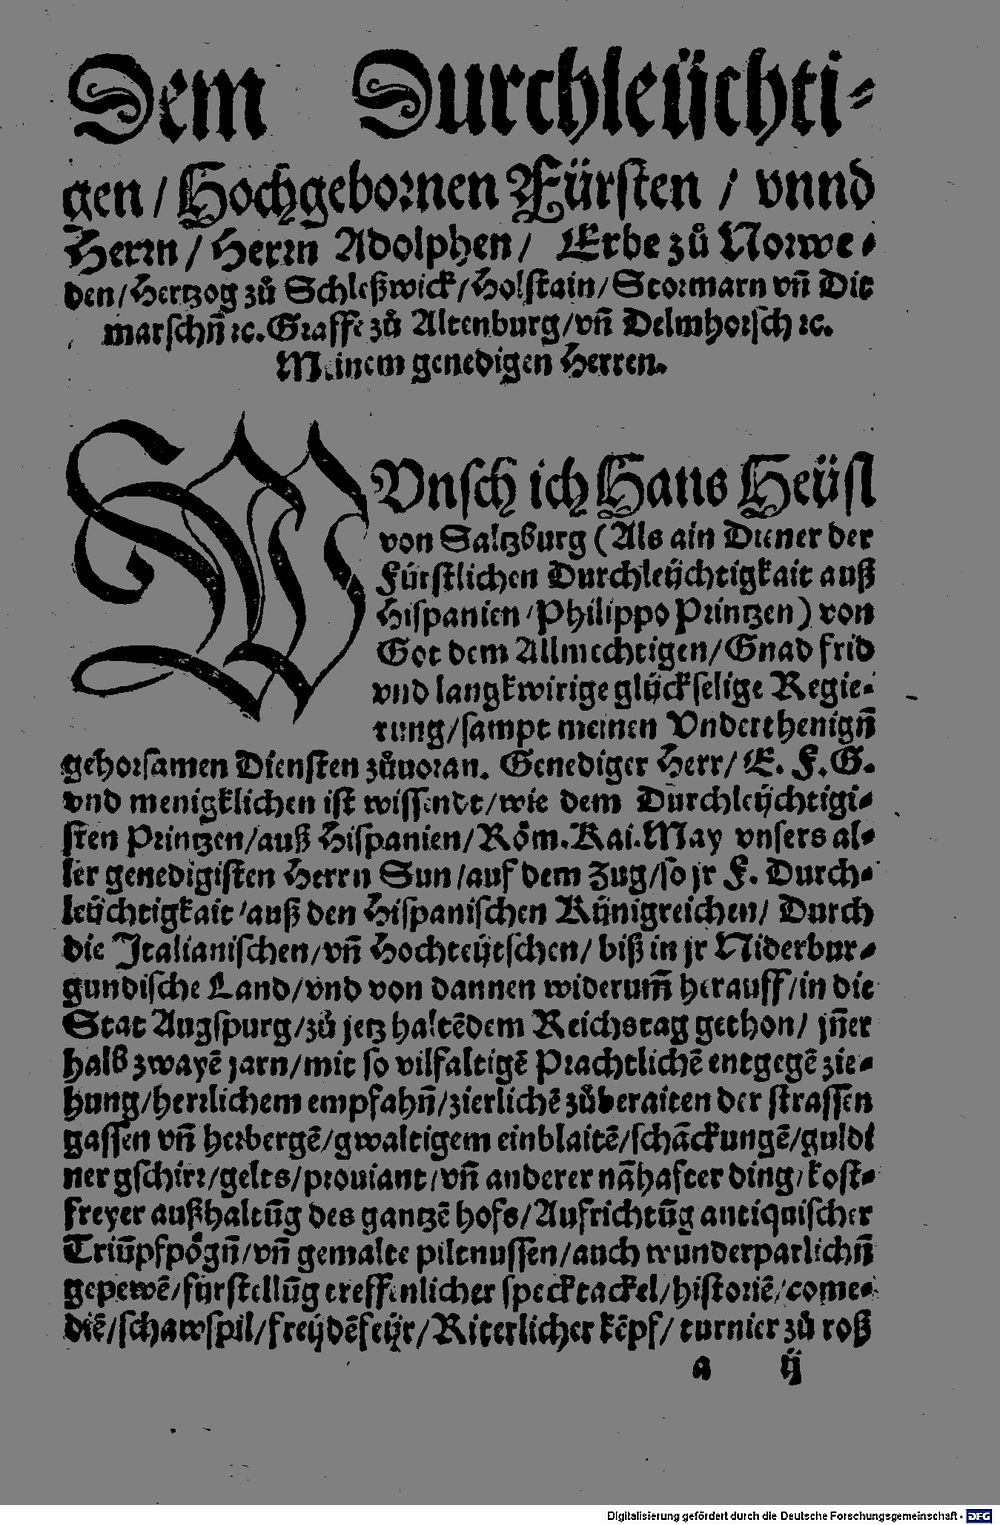 Dem Durchleüchti-
gen / Hochgebornen Fürsten / vnnd
Herrn / Herrn Adolphen / Erbe zů Norwe-
den / Hertzog zů Schleßwick / Holstain / Stormarn vñ Dit
marschñ ꝛc. Graffe zů Altenburg / vñ Delmhorsch ꝛc.
Meinem genedigen Herren.
WVnsch ich Hans Heüsl
von Saltzburg (Als ain Diener der
Fürstlichen Durchleÿchtigkait auß
Hispanien / Philippo Printzen) von
Got dem Allmechtigen / Gnad frid
vnd langkwirige glÿckselige Regie-
rung / sampt meinen Vnderthenigñ
gehorsamen Diensten zůuoran. Genediger Herr / E. F. G.
vnd menigklichen ist wissendt / wie dem Durchleÿchtigi-
sten Printzen / auß Hispanien / Röm. Kai. May vnsers al-
ler genedigisten Herrn Sun / auf dem Zug / so jr F. Durch-
leÿchtigkait / auß den Hispanischen Kÿnigreichen / Durch
die Italianischen / vñ Hochteÿtschen / biß in jr Niderbur-
gundische Land / vnd von dannen widerum̃ herauff / in die
Stat Augspurg / zů jetz haltẽdem Reichstag gethon / jñer
halb zwayẽ jarn / mit so vilfaltigẽ Prachtlichẽ entgegẽ zie-
hung / herrlichem empfahñ / zierlichẽ zůberaiten der strassen
gassen vñ herbergẽ / gwaltigem einblaitẽ / schãckungẽ / guldi
ner gschirr / gelts / prouiant / vñ anderer nãhafter ding / kost-
freyer außhaltũg des gantzẽ hofs / Aufrichtũg antiquischer
Triũpfpögñ / vñ gemalte piltnussen / auch wunderparlichñ
gepewẽ / fÿrstellũg treffenlicher specktackel / historiẽ / come-
diẽ / schawspil / freÿdẽfeÿr / Riterlicher kẽpf / turnier zů roß
a ij
Digitalisierung gefördert durch die Deutsche Forschungsgemeinschaft - DFG